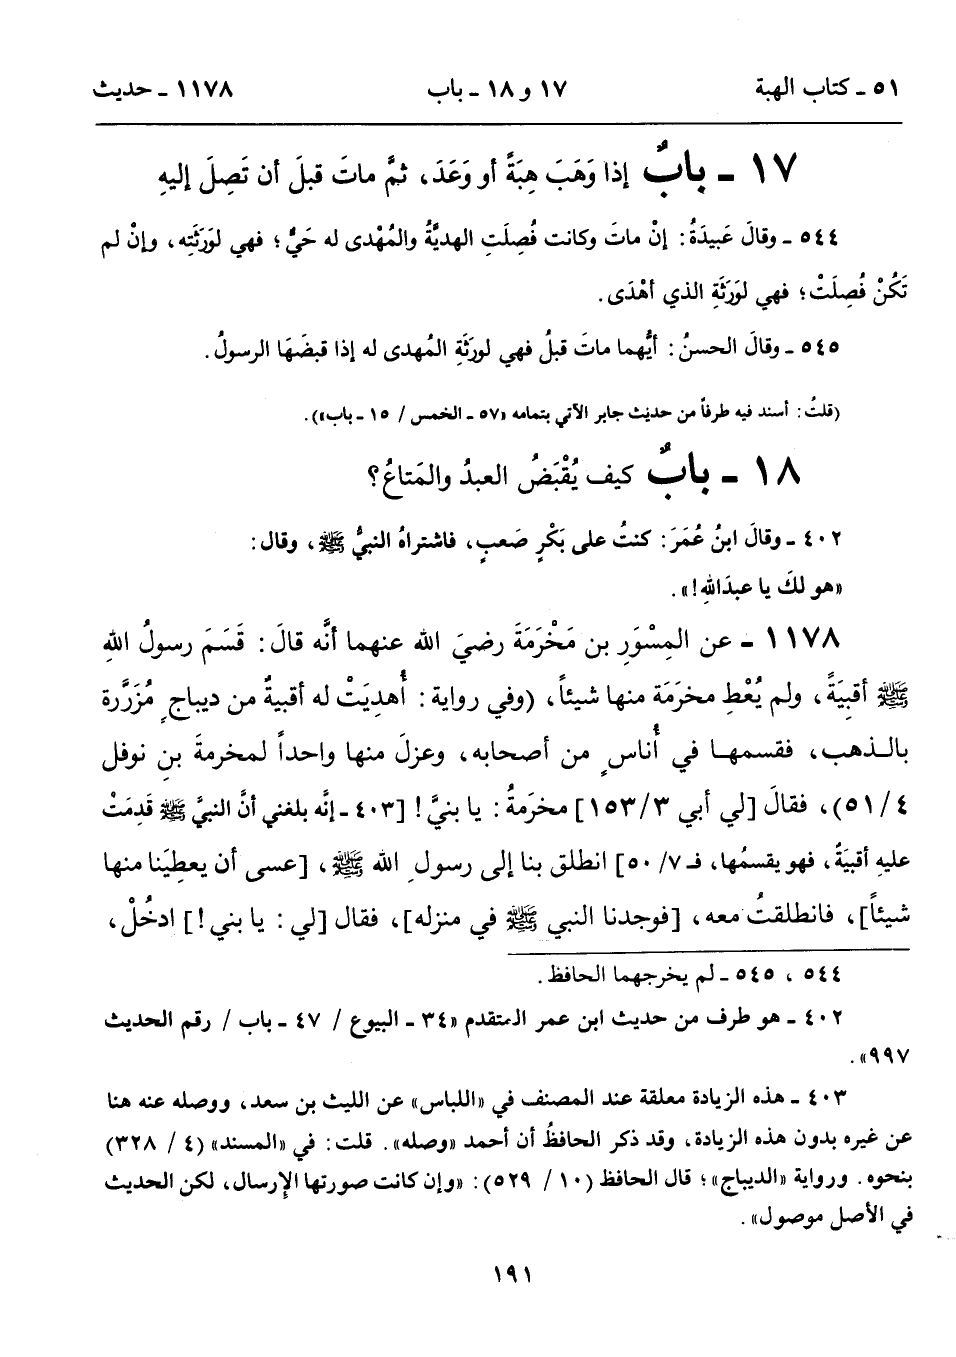 ٥١ ـ كتاب الهبة ١٧ و ١٨ ـ باب ١١٧٨ ـ حديث
١٧ ـ بابٌ إذا وَهَبَ هِبَةً أو وَعَدَ، ثمَّ ماتَ قبلَ أن تَصِلَ إليهِ
٥٤٤ ـ وقالَ عَبيدَةُ: إنْ ماتَ وكانت فُصِلَتِ الهديَّةُ والمُهْدى له حَيٌّ؛ فهي لوَرَثَتِه، وإنْ لم
تَكُنْ فُصِلَتْ؛ فهي لوَرَثَةِ الذي أهْدَى.
٥٤٥ ـ وقالَ الحسنُ: أيُّهما ماتَ قبلُ فهي لورثَةِ المُهدى له إذا قبضَهَا الرسولُ.
(قلتُ: أسند فيه طرفاً من حديث جابر الآتي بتمامه «٥٧ ـ الخمس / ١٥ ـ باب»).
١٨ ـ بابٌ كيف يُقْبَضُ العبدُ والمَتاعُ؟
٤٠٢ ـ وقالَ ابنُ عُمَرَ: كنتُ على بَكْرٍ صَعبٍ، فاشتراهُ النبيُّ ﷺ، وقال:
«هو لكَ يا عبدَاللهِ!».
١١٧٨ ـ عن المِسْوَرِ بن مَخْرَمَةَ رضيَ الله عنهما أنَّه قالَ: قَسَمَ رسولُ اللهِ
ﷺ أقبِيَةً، ولم يُعْطِ مخرَمَة منها شيئاً، (وفي رواية: أُهدِيَتْ له أقبيةٌ من ديباجٍ مُزَرَّرة
بالذهب، فقسمها في أُناسٍ من أصحابه، وعزلَ منها واحداً لمخرمةَ بنِ نوفل
٥١/٤)، فقالَ [لي أبي ١٥٣/٣] مخرَمةُ: يا بنيَّ! [٤٠٣ ـ إنَّه بلغني أنَّ النبيَّ ﷺ قَدِمَتْ
عليهِ أقبيَةٌ، فهو يقسمُها، فـ ٧/ ٥٠] انطلق بنا إلى رسولِ الله ﷺ، [عسى أن يعطِيَنا منها
شيئاً]، فانطلقتُ معه، [فوجدنا النبي ﷺ في منزله]، فقال [لي: يا بني!] ادخُلْ،
٥٤٤ ، ٥٤٥ ـ لم يخرجهما الحافظ.
٤٠٢ ـ هو طرف من حديث ابن عمر المتقدم «٣٤ ـ البيوع / ٤٧ ـ باب / رقم الحديث
٩٩٧».
٤٠٣ ـ هذه الزيادة معلقة عند المصنف في «اللباس» عن الليث بن سعد، ووصله عنه هنا
عن غيره بدون هذه الزيادة، وقد ذكر الحافظُ أن أحمد «وصله». قلت: في «المسند» (٤ / ٣٢٨)
بنحوه. ورواية «الديباج»؛ قال الحافظ (١٠ / ٥٢٩): «وإن كانت صورتها الإرسال، لكن الحديث
في الأصل موصول».
١٩١